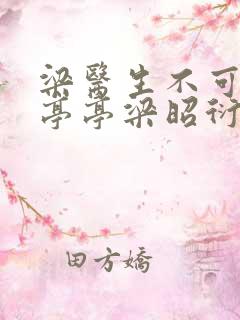 梁醫生不可
亭亭梁昭衍
田方嬌